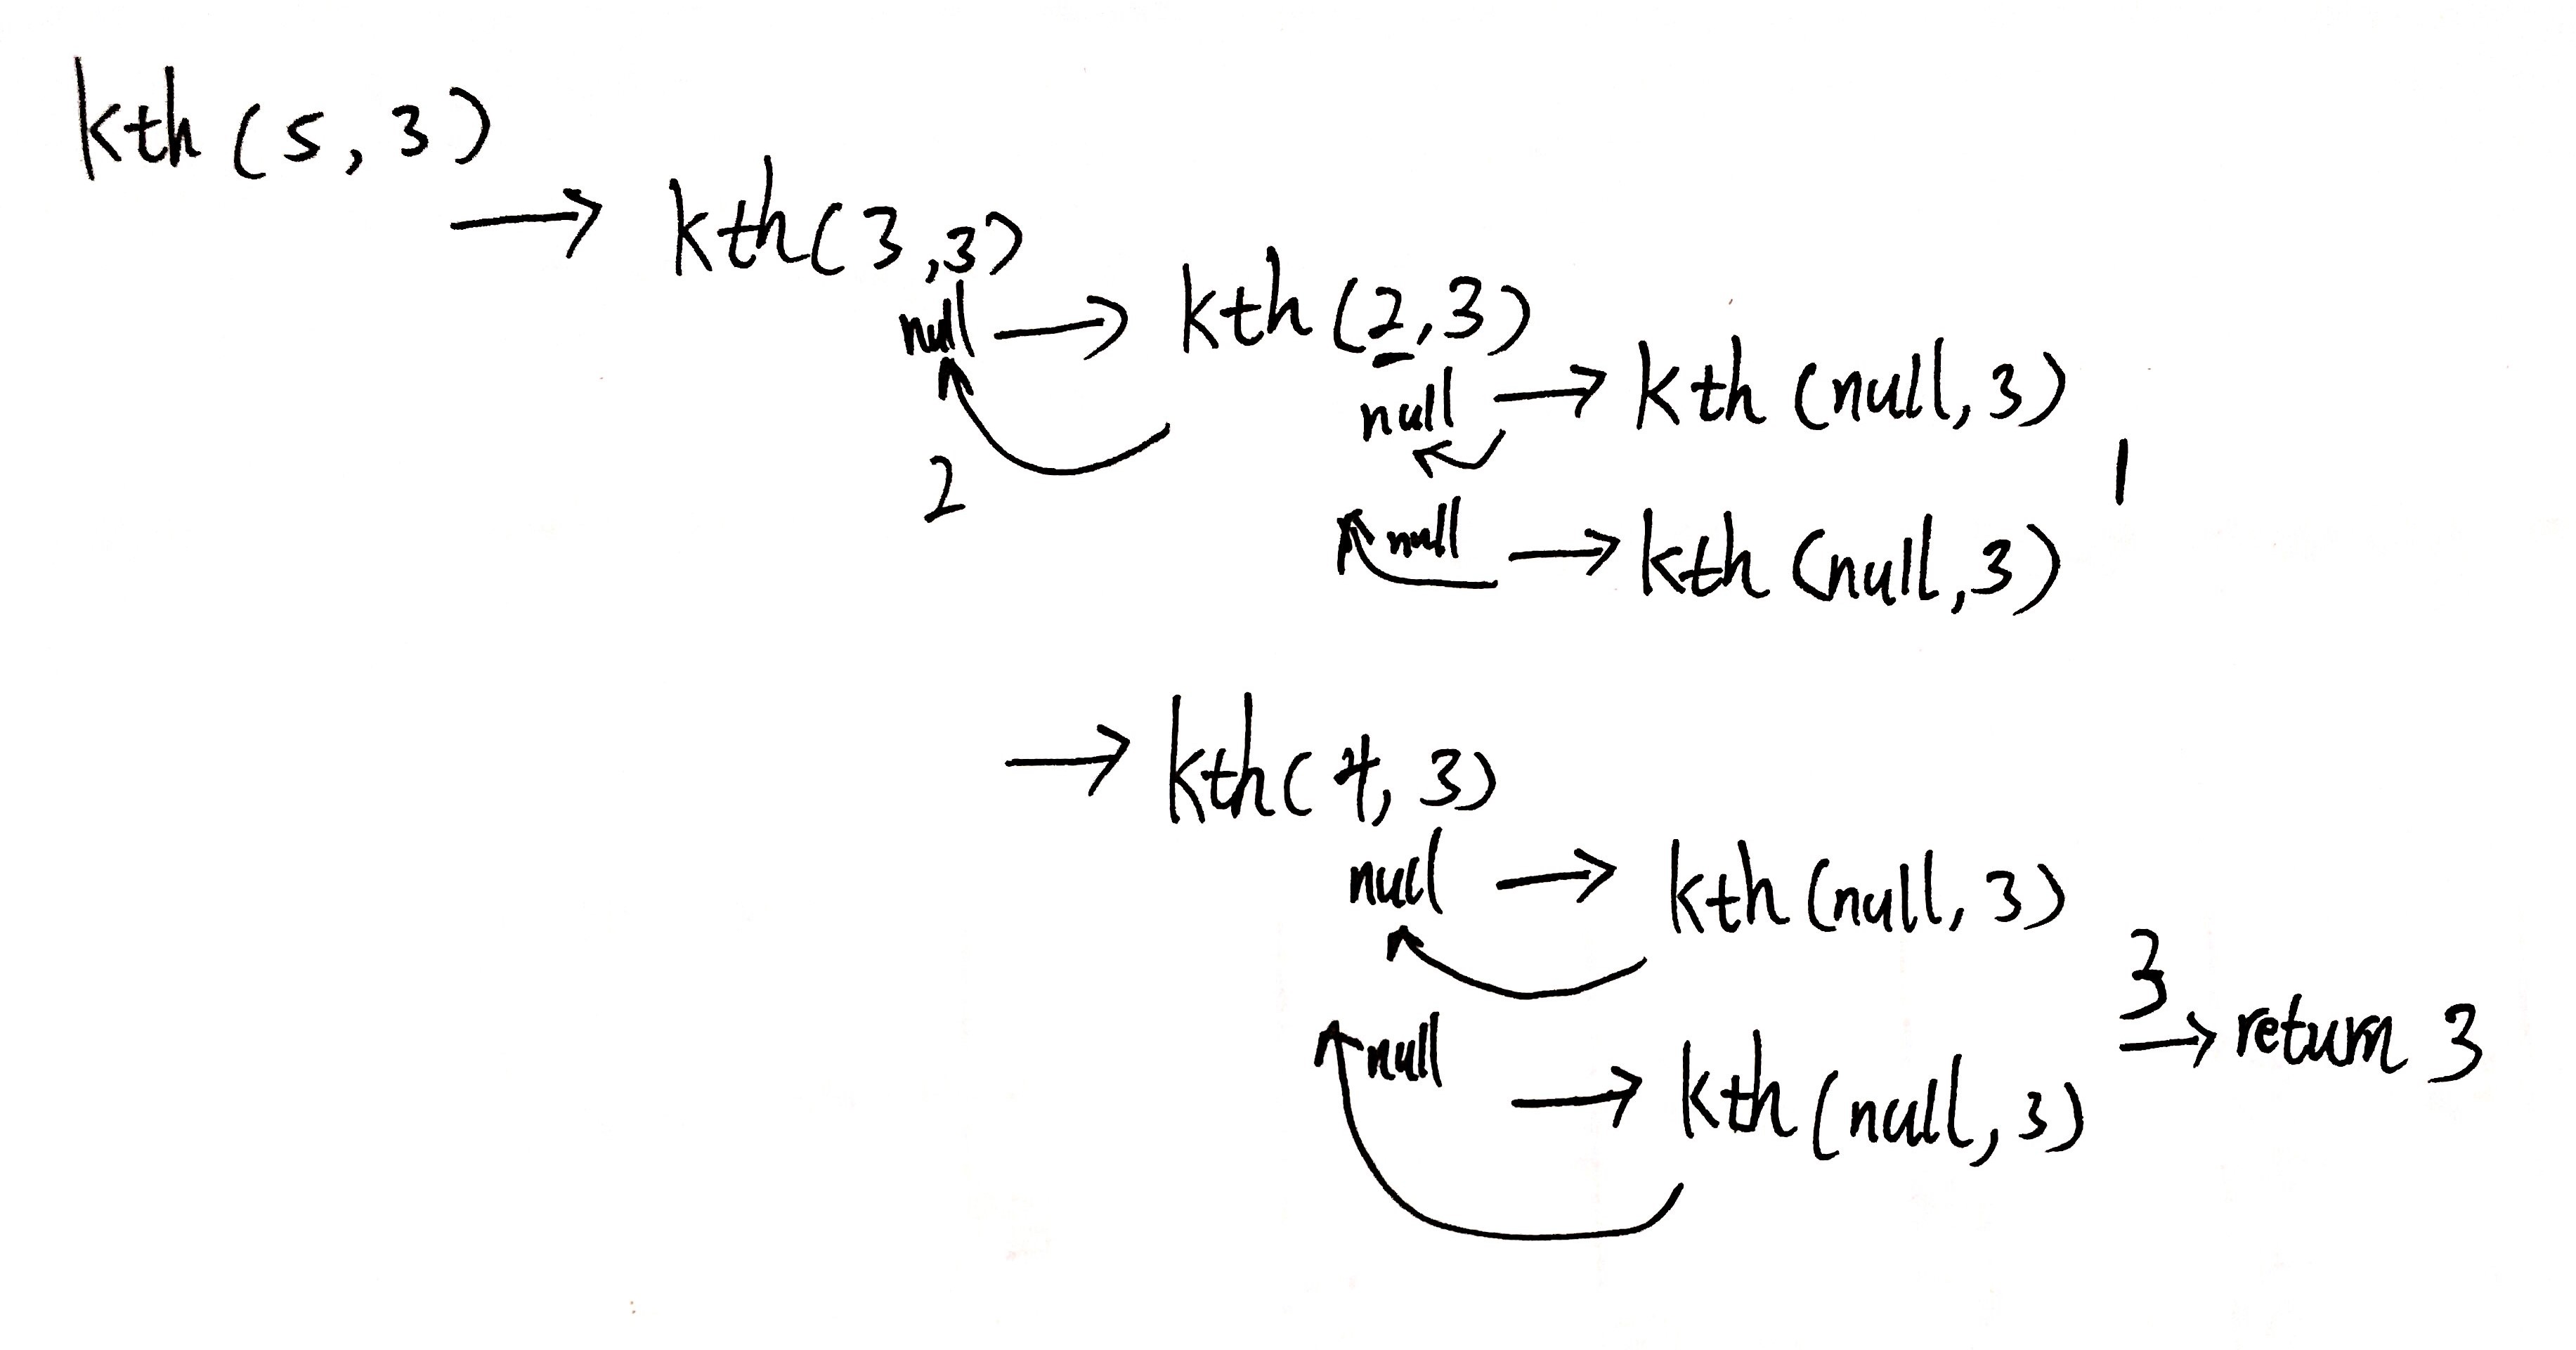 kth (5, 3)
→ kth(3,3)
null → kth (2,3)
null → kth (null, 3)
2
1
null → kth (null,3)
→ kth( 4, 3)
null → kth (null, 3)
3
null
→ return 3
→ kth (null, 3)